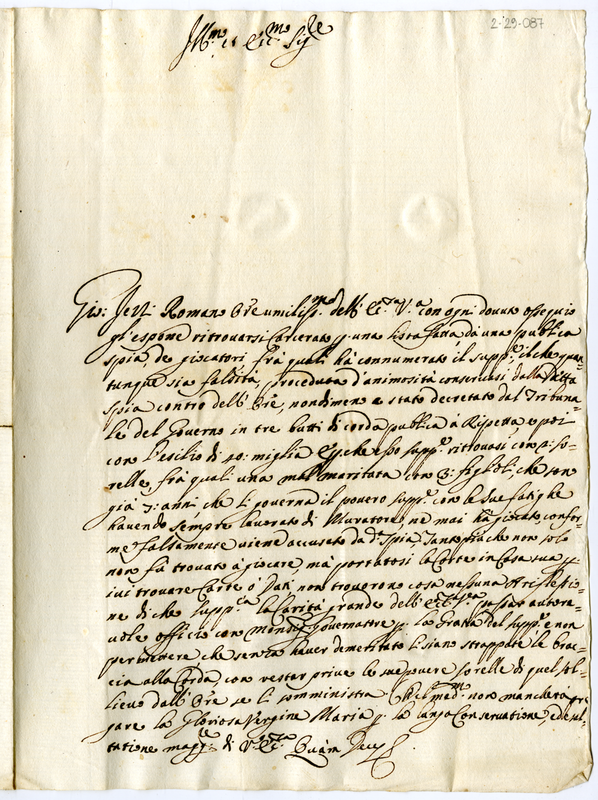 2-29-087
Ill.mo et Ecc.mo Sig.re
Gio: Romano Ore umiliss.mo dell' Ec.za V.a con ogni dovuto ossequio
gl'espone ritrovarsi Carcerato p. una lista fatta da una publica
spia, de giocatori frà quali hà connumerato il supp.e, il che quan=
tunque sia falsità, proceduta d'animosità conservasi dalla
spia contro dell' Ore, nondimeno è stato decretato dal Tribuna=
le del Governo in tre tratti di corda publica à Ripetta e poi
con l'esilio di 40: miglia, e perche esso supp.e ritrovasi con so=
relle, frà quali una mal maritata con 3: figlioli, che son
già 7: anni che li governa il povero supp.e con le sue fatighe
havendo sempre lavorato di Muratore, ne mai hà giocato confor=
me falsamente viene accusato da d.a Spia, tanto più che non solo
non fù trovato à giocare mà portatosi la Corte in Casa sua p.
ivi trovare Carte ò Dadi non trovorono cosa nessuna
ne di che supp.ca la Carità grande dell' Ecc.za V.ra passar autore=
vole officio con Monsig.r Governatore p. la Gratia del supp.e e non
permettere che senza haver demeritato li siano strappate le brac=
cia alla Corda, con restar prive le sue povere sorelle di quel sol=
lievo dall' Ore se li somministra Che il med.mo non mancherà pre
gare la Gloriosa Vergine Maria p. la lunga Conservatione, ed esal=
tatione magg.re di V. Ecc.za Quam Deus